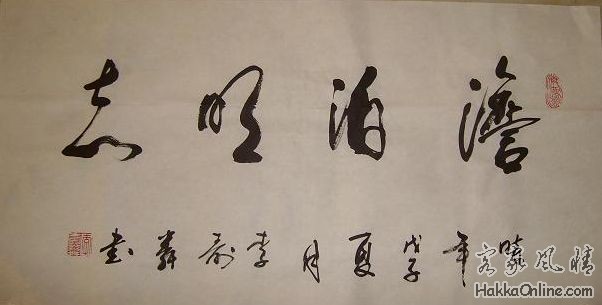 澹泊明志
年戊子夏月李書
客家风情
HakkaOnline.com